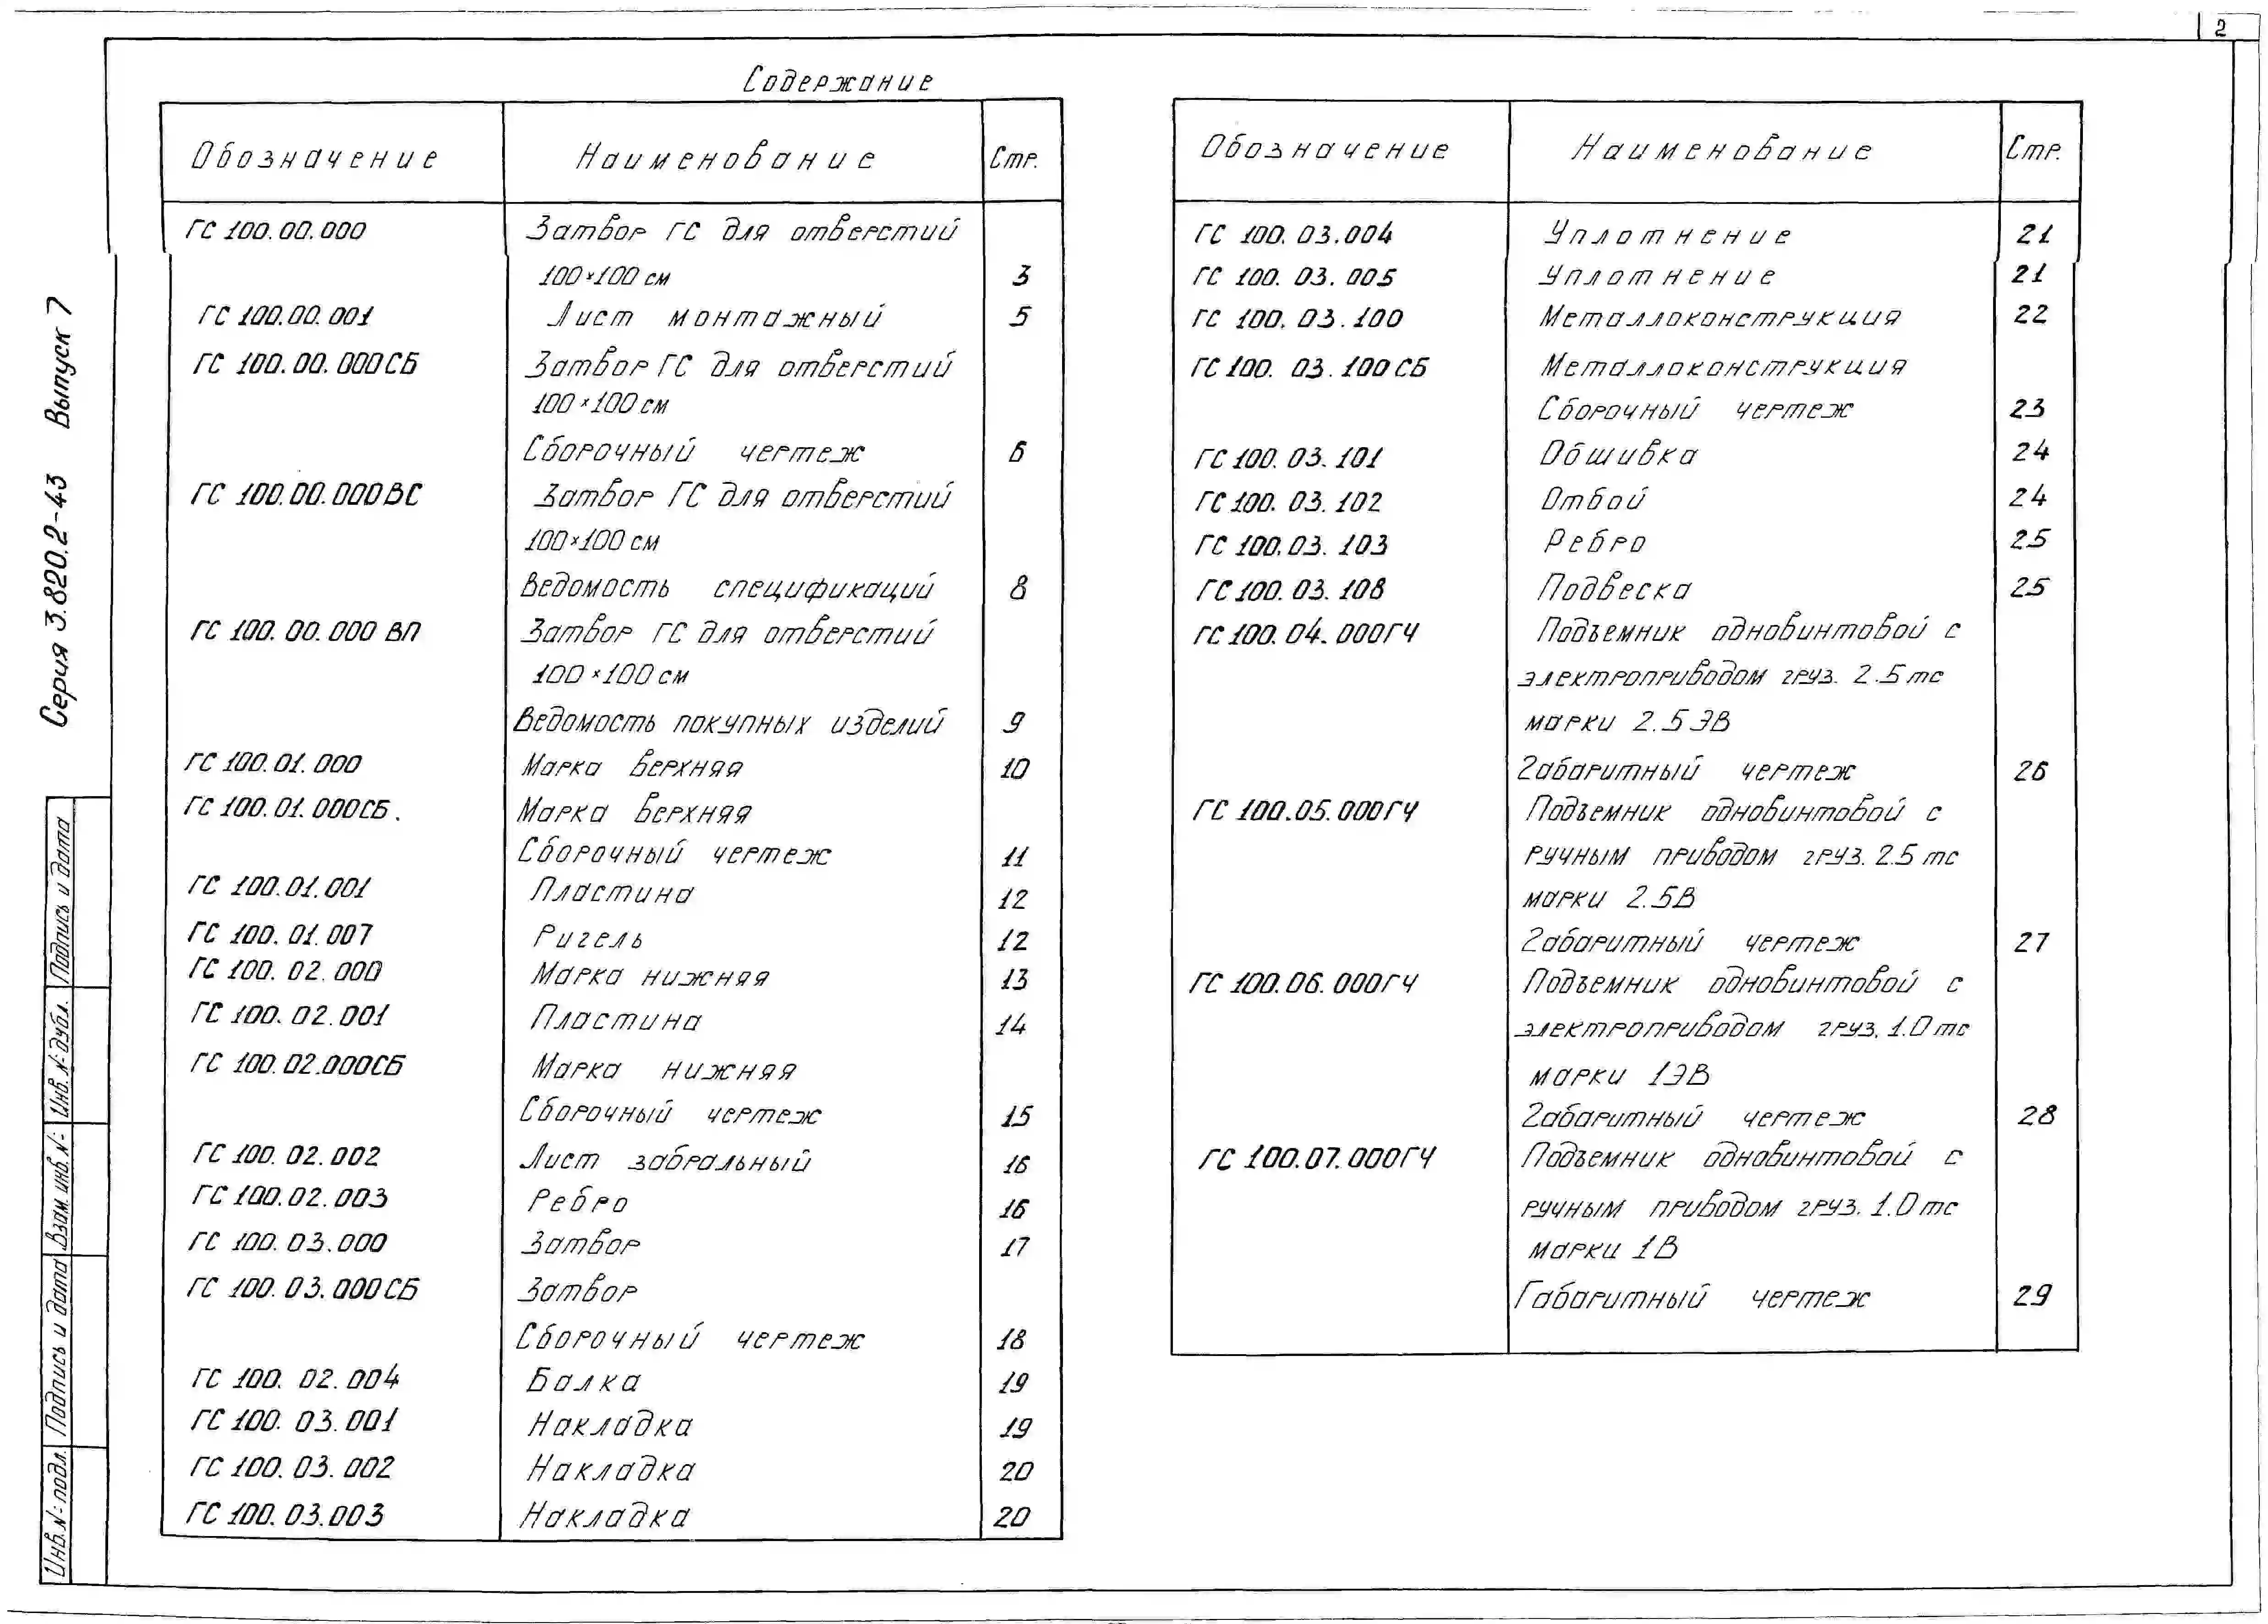 2
Содержание
Обозначение Наименование Стр.
ГС 100.00.000 Затвор ГС для отверстий
100×100 см 3
ГС 100.00.001 Лист монтажный 5
ГС 100.00.000СБ Затвор ГС для отверстий
100×100 см
Сборочный чертеж 6
ГС 100.00.000ВС Затвор ГС для отверстий
100×100 см
Ведомость спецификаций 8
ГС 100.00.000 ВП Затвор ГС для отверстий
100×100 см
Ведомость покупных изделий 9
ГС 100.01.000 Марка верхняя 10
ГС 100.01.000СБ. Марка верхняя
Сборочный чертеж 11
ГС 100.01.001 Пластина 12
ГС 100.01.007 Ригель 12
ГС 100.02.000 Марка нижняя 13
ГС 100.02.001 Пластина 14
ГС 100.02.000СБ Марка нижняя
Сборочный чертеж 15
ГС 100.02.002 Лист забральный 16
ГС 100.02.003 Ребро 16
ГС 100.03.000 Затвор 17
ГС 100.03.000СБ Затвор
Сборочный чертеж 18
ГС 100.02.004 Балка 19
ГС 100.03.001 Накладка 19
ГС 100.03.002 Накладка 20
ГС 100.03.003 Накладка 20
Обозначение Наименование Стр.
ГС 100.03.004 Уплотнение 21
ГС 100.03.005 Уплотнение 21
ГС 100.03.100 Металлоконструкция 22
ГС 100.03.100СБ Металлоконструкция
Сборочный чертеж 23
ГС 100.03.101 Обшивка 24
ГС 100.03.102 Отбой 24
ГС 100.03.103 Ребро 25
ГС 100.03.108 Подвеска 25
ГС 100.04.000ГЧ Подъемник одновинтовой с
электроприводом груз. 2.5 тс
марки 2.5ЭВ
Габаритный чертеж 26
ГС 100.05.000ГЧ Подъемник одновинтовой с
ручным приводом груз. 2.5 тс
марки 2.5В
Габаритный чертеж 27
ГС 100.06.000ГЧ Подъемник одновинтовой с
электроприводом груз. 1.0 тс
марки 1ЭВ
Габаритный чертеж 28
ГС 100.07.000ГЧ Подъемник одновинтовой с
ручным приводом груз. 1.0 тс
марки 1В
Габаритный чертеж 29
Серия 3.820.2-43 Выпуск 7
Инв.№ подл. Подпись и дата Взам. инв.№ Инв.№ дубл. Подпись и дата